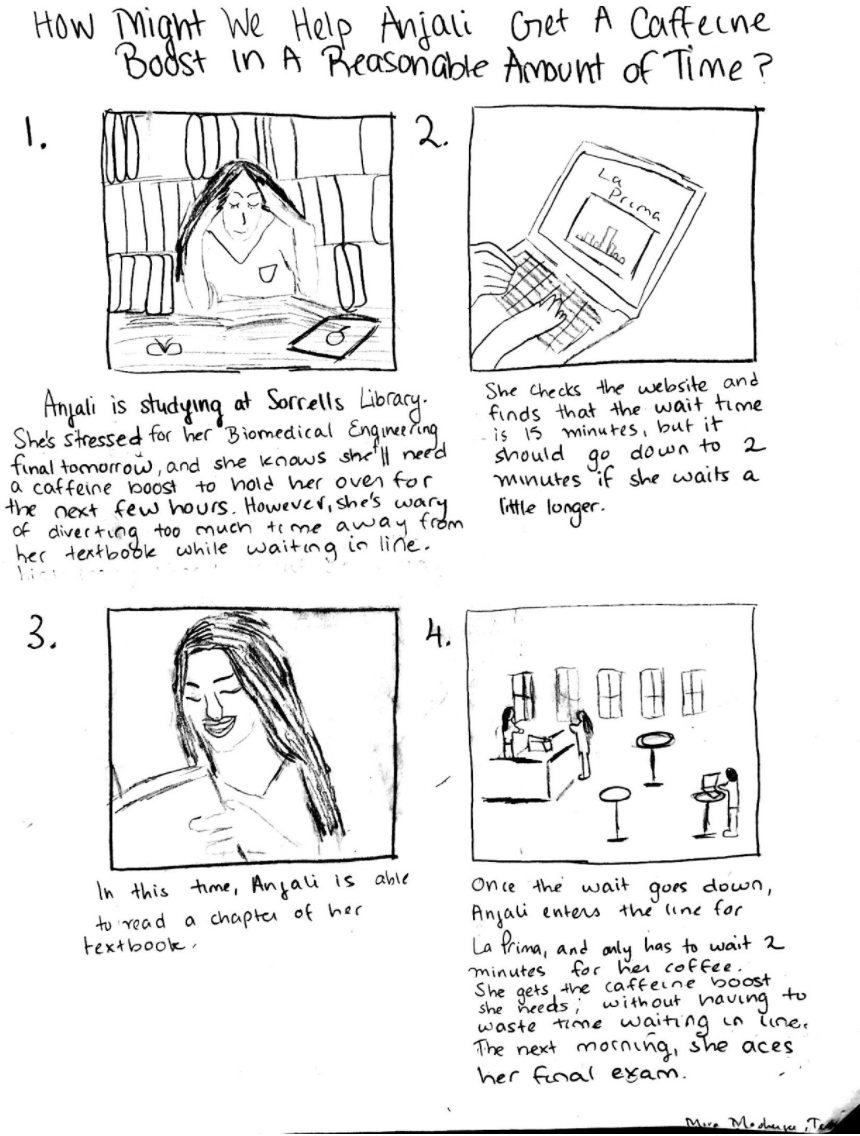 How Might We Help Anjali Get A Caffeine
Boost In A Reasonable Amount of Time?
1.
2.
La
Prima
Anjali is studying at Sorrells Library.
She's stressed for her Biomedical Engineering
final tomorrow, and she knows she'll need
a caffeine boost to hold her over for
the next few hours. However, she's wary
of diverting too much time away from
her textbook while waiting in line.
She checks the website and
finds that the wait time
is 15 minutes, but it
should go down to 2
minutes if she waits a
little longer.
3.
4.
In this time, Anjali is able
to read a chapter of her
textbook.
Once the wait goes down,
Anjali enters the line for
La Prima, and only has to wait 2
minutes for her coffee.
She gets the caffeine boost
she needs; without having to
waste time waiting in line.
The next morning, she aces
her final exam.